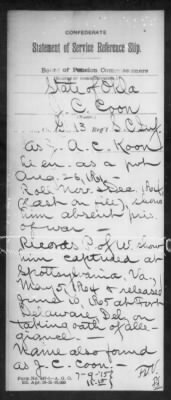 CONFEDERATE
Statement of Service Reference Slip.
Board of Pension Commissioners
State of Okla
J. C. Coon
Co. 13 Reg't S.C. Inf.
as J. A. C. Koon
en. as a pvt
Aug.
Roll Nov. & Dec.
(last on file), shows
him absent pris.
of war —
Records P. of W. show
him captured at
Spottsylvania, Va.,
May & released
June 10, 1865 at Fort
Delaware, Del., on
taking oath of alle-
giance. —
Name also found
as J. C. Coon. —
7-9-15